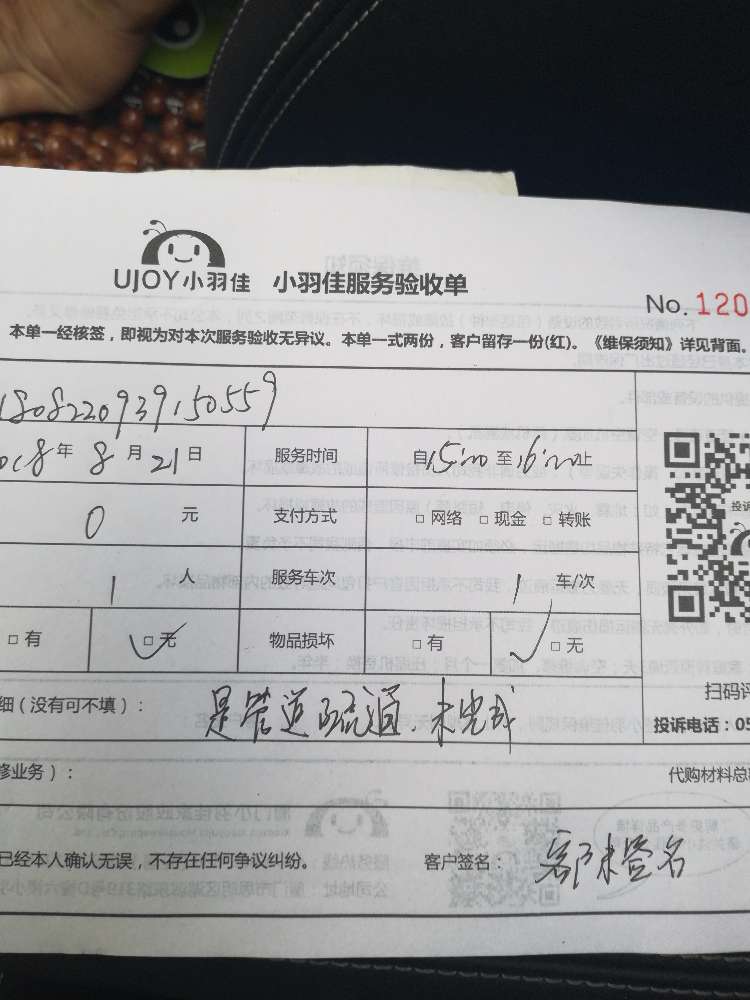 UJOY小羽佳 小羽佳服务验收单
No. 120
本单一经核签，即视为对本次服务验收无异议。本单一式两份，客户留存一份(红)。《维保须知》详见背面。
180822093915 0559
018年8月21日 服务时间 自15:00至16:00止
0 元 支付方式 □ 网络 □ 现金 □ 转账
1 人 服务车次 1 车/次
□ 有 □ 无 物品损坏 □ 有 □ 无
扫码评
细（没有可不填）： 是管道疏通，未完成
投诉电话：05
修业务）：
代购材料总
已经本人确认无误，不存在任何争议纠纷。 客户签名： 客户未签名